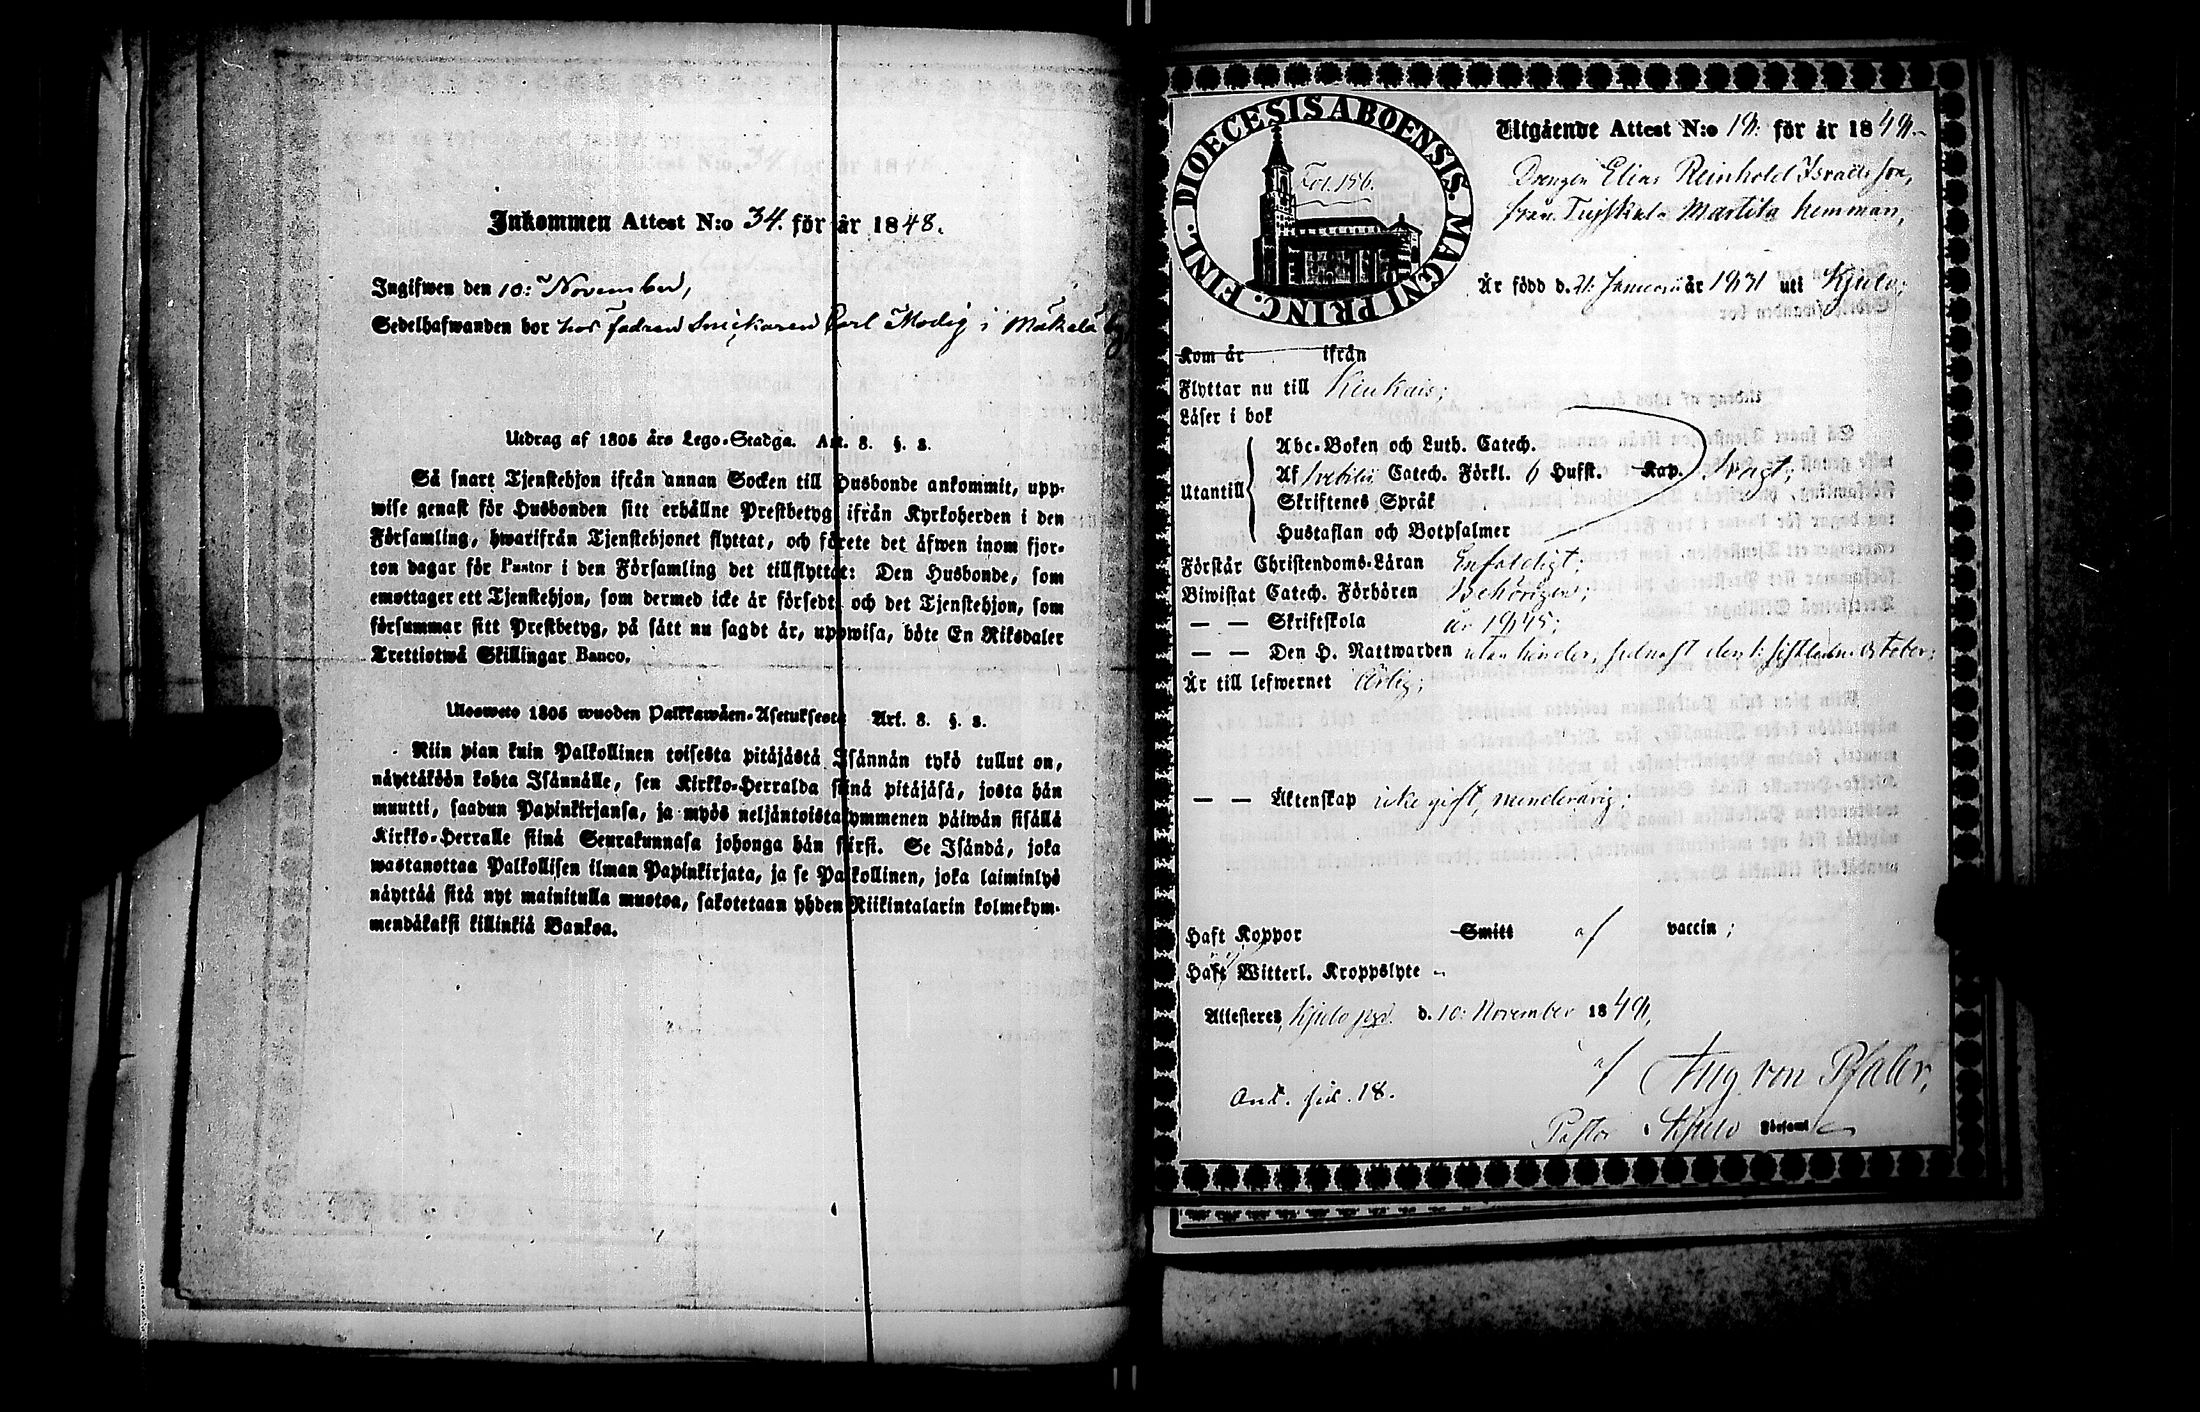 Inkommen Attest N:o 34. för år 1848.
Ingifwen den 10: November,
Sedelhafwanden bor hos fadren Snickaren Carl Modig i Mäkelä
Utdrag af 1805 års Lego-Stadga. Art. 8. §. 3.
Så snart Tjenstehjon ifrån annan Socken till Husbonde ankommit, upp-
wise genast för Husbonden sitt erhållne Prestbetyg ifrån Kyrkoherden i den
Församling, hwarifrån Tjenstehjonet flyttat, och förete det äfwen inom fjor-
ton dagar för Pastor i den Församling det tillflyttat: Den Husbonde, som
emottager ett Tjenstehjon, som dermed icke är försedt, och det Tjenstehjon, som
försummar sitt Prestbetyg, på sätt nu sagdt är, uppwisa, böte En Riksdaler
Trettiotwå Skillingar Banco.
Ulosweto 1805 wuoden Palkkawäen-Asetuksesta Art. 8. §. 3.
Niin pian kuin Palkollinen toisesta pitäjästä Isännän tykö tullut on,
näyttäköön kohta Isännälle, sen Kirkko-Herralda siinä pitäjäsä, josta hän
muutti, saadun Papinkirjansa, ja myös neljäntoistakymmenen päiwän sisällä
Kirkko-Herralle siinä Seurakunnasa johonga hän siirsi. Se Isändä, joka
wastanottaa Palkollisen ilman Papinkirjata, ja se Palkollinen, joka laiminlyö
näyttää sitä nyt mainitulla muotoa, sakotetaan yhden Riikintalarin kolmekym-
mendäkaksi killinkiä Bankoa.
DIOECESIS ABOENSIS. MAGNI PRINC. FINL.
Fol. 156.
Utgående Attest N:o 18: för år 1848
Drengen Elias Reinhold Israelsson,
från Tuiskula Martila hemman,
Är född d. 21: Januarii år 1831 uti Kjulo;
Kom år ifrån
Flyttar nu till Kiukais;
Läser i bok
Utantill
Abc-Boken och Luth. Catech.
Af Svebilii Catech. Förkl. 6 Hufst. Kap. Svagt;
Skriftenes Språk
Hustaflan och Botpsalmer
Förstår Christendoms-Läran Enfaldigt;
Biwistat Catech. Förhören Behörigen;
— — Skriftskola år 1845;
— — Den H. Nattwarden utan hinder, sednast den 1: sistledne October;
Är till lefwernet Ärlig;
— — Äktenskap icke gift, minderårig;
Haft Koppor Smitt af vaccin;
Haft Witterl. Kroppslyte
Attesteres, Kjulo psgd. d. 10: November 1848,
af Aug. von Pfaler,
Pastor i Kjulo Församl
Ank. fol. 18.